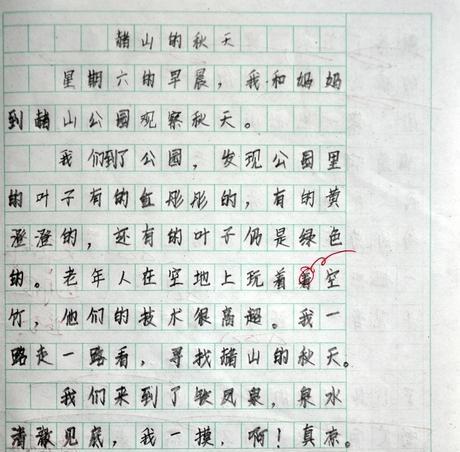 赭山的秋天
星期六的早晨，我和妈妈
到赭山公园观察秋天。
我们到了公园，发现公园里
的叶子有的红彤彤的，有的黄
澄澄的，还有的叶子仍是绿色
的。老年人在空地上玩着着空
竹，他们的技术很高超。我一
路走一路看，寻找赭山的秋天。
我们来到了凤泉，泉水
清澈见底，我一摸，啊！真凉。